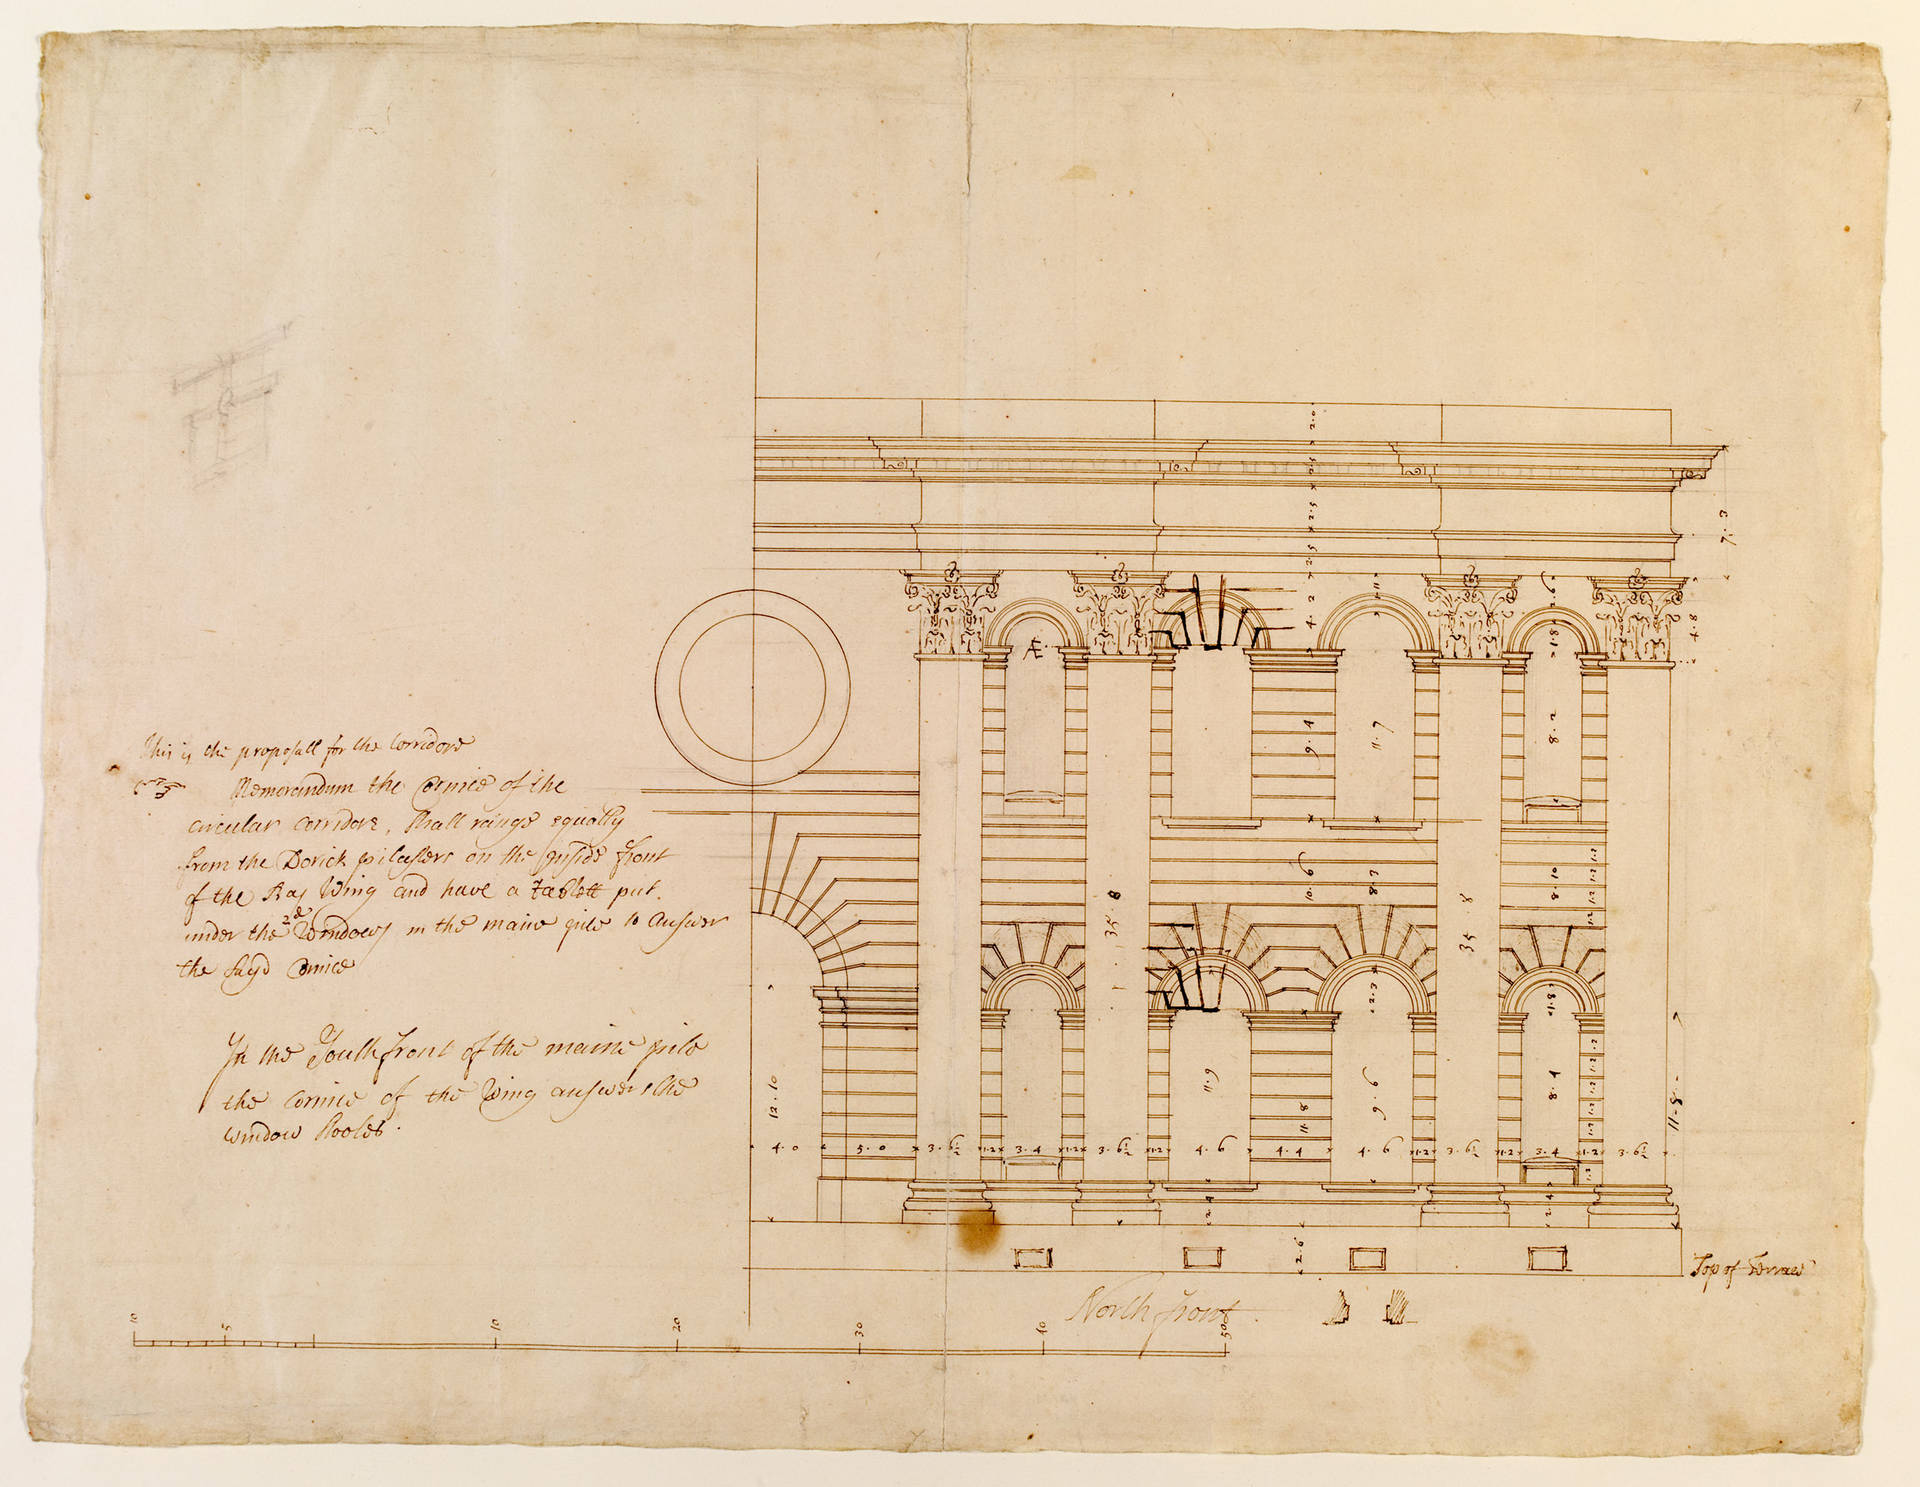 This is the proposall for the Corridore
Memorandum the Cornice of the
circular corridore, shall range equally
from the Dorick pilasters on the inside front
of the Bas Wing and have a tablett put
under the 2d Windows in the maine pile to answer
the sayd Cornice
In the South front of the maine pile
the cornice of the Wing answers the
window stooles.
2.0
2.5
2.5
2.5
7.3
4.2
11
2.6
4.8
Æ
1.8
9.4
11.7
8.2
10.6
8.7
8.10
1.2 1.2
1.2 1.2
35.8
35.8
2.3
1.8
12.10
11.9
9.6
8.4
11.8
11.8
4.0 5.0 3.6½ 1.2 3.4 1.2 3.6½ 1.2 4.6 4.4 4.6 1.2 3.6½ 1.2 3.4 1.2 3.6½
2.4
2.4
2.6
Top of Terrace
North front.
10 5 10 20 30 40 50